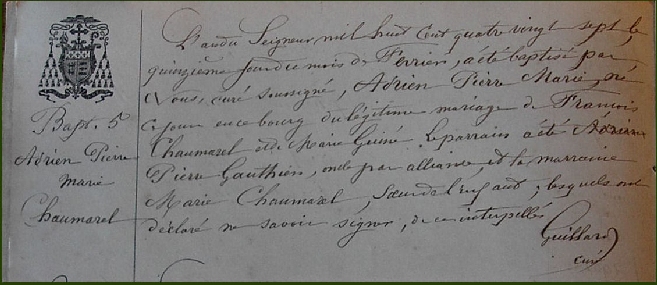 Bapt. 5
Adrien Pierre
Marie
Chaumarel
L'an du Seigneur mil huit cent quatre vingt sept le
quinzième jour du mois de Février, a été baptisé par
Nous, curé soussigné, Adrien Pierre Marie, né
ce jour en ce bourg du légitime mariage de François
Chaumarel et de Marie Guiné. Le parrain a été Adrien
Pierre Gauthier, oncle par alliance, et la marraine
Marie Chaumarel, Sœur de l'enfant, lesquels ont
déclaré ne savoir signer, de ce interpellés
Guillard
curé